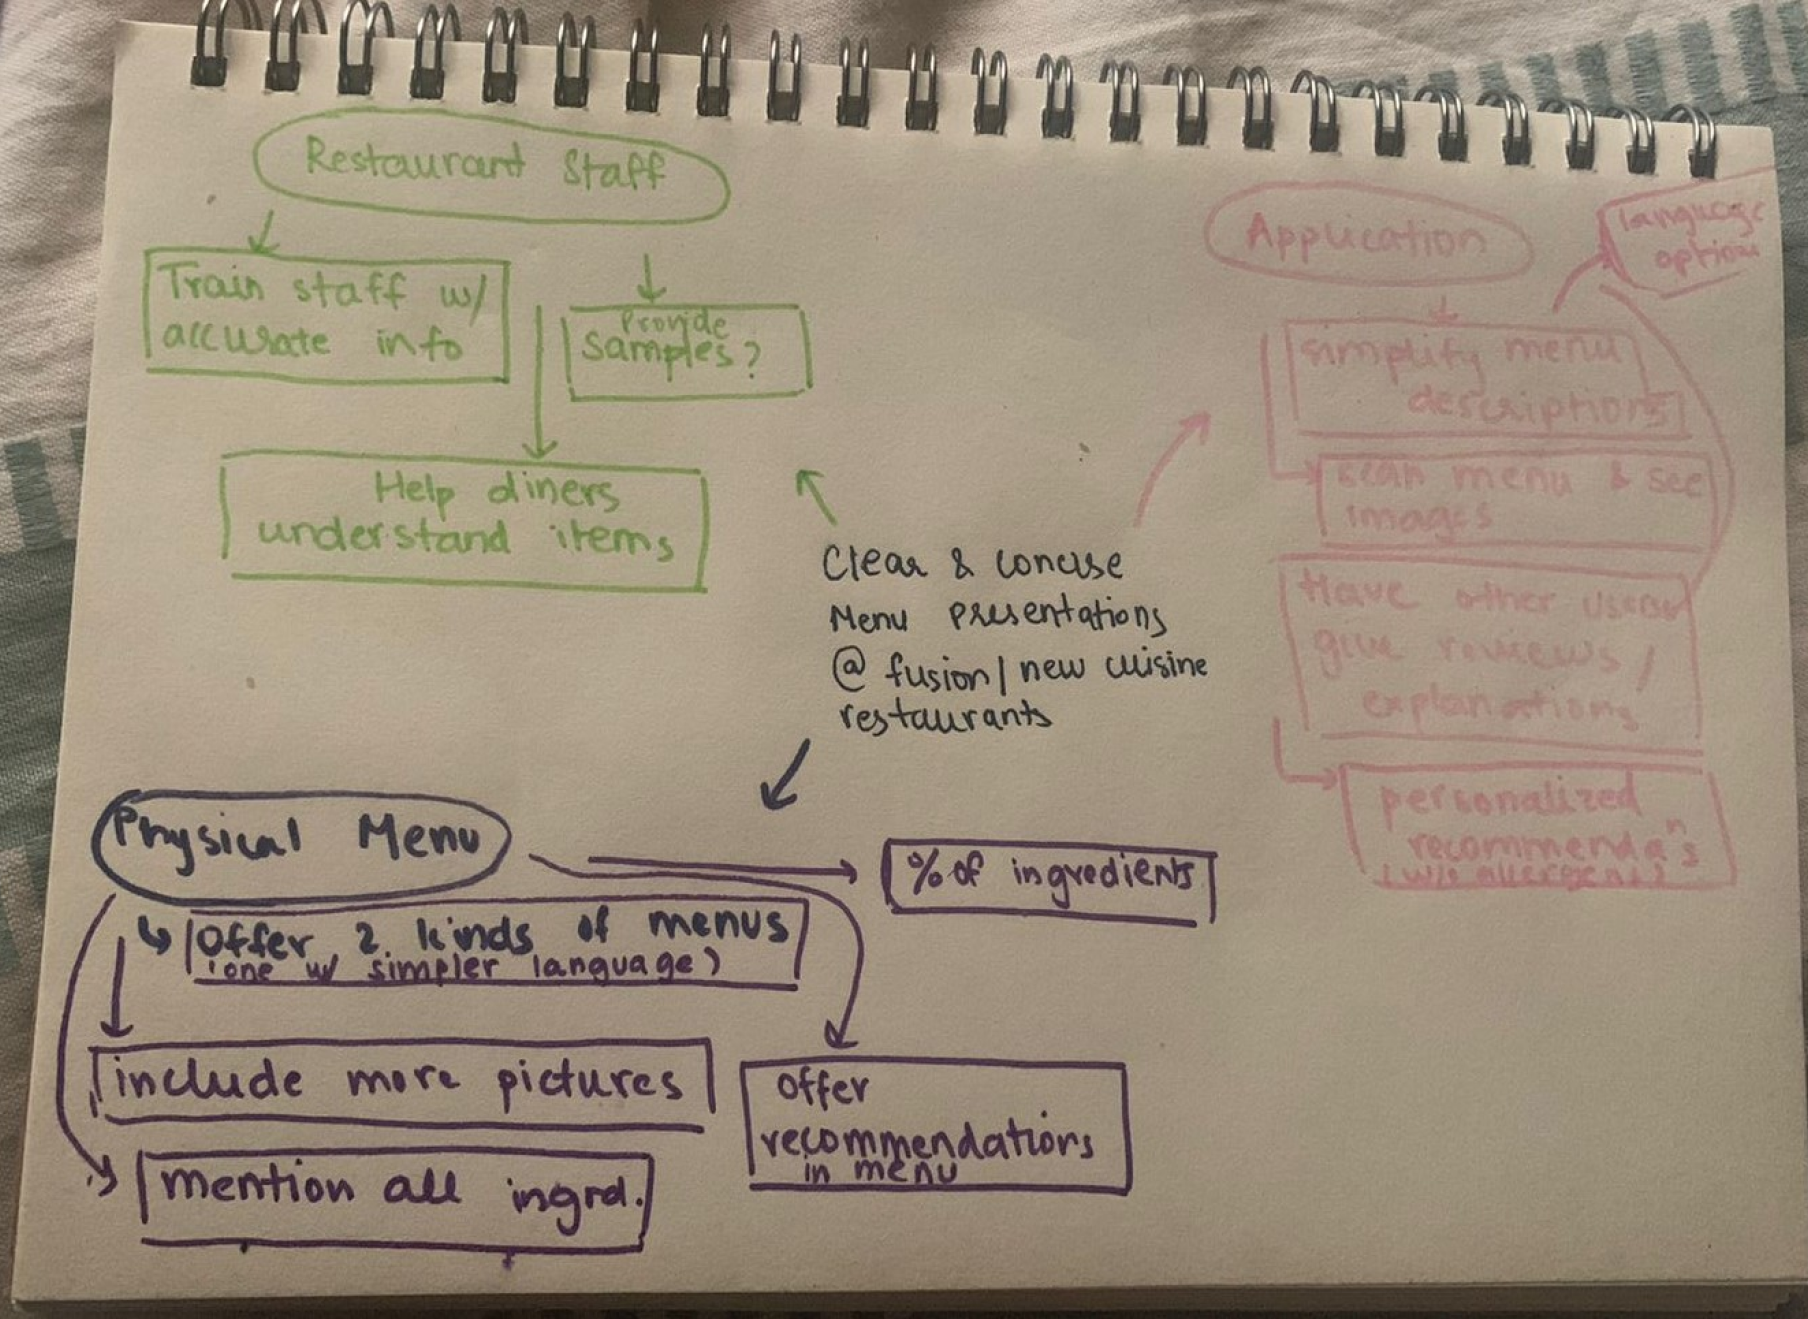 Restaurant Staff
Train staff w/
accurate info
Provide
samples?
Help diners
understand items
Application
language
options
simplify menu
descriptions
scan menu & see
images
Have other users
give reviews /
explanations
personalized
recommenda'ns
(w/o allergens)
Clear & concise
Menu presentations
@ fusion/new cuisine
restaurants
Physical Menu
% of ingredients
Offer 2 kinds of menus
(one w/ simpler language)
include more pictures
mention all ingrd.
Offer
recommendations
in menu